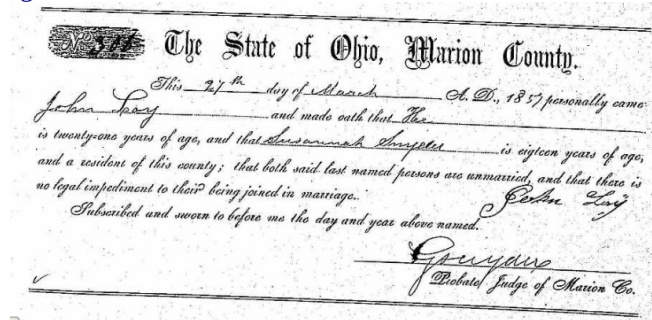 The State of Ohio, Marion County.
This 27th day of March A. D., 1857 personally came
John and made oath that He
is twenty-one years of age, and that Susannah Snyder is eigteen years of age,
and a resident of this county; that both said last named persons are unmarried, and that there is
no legal impediment to their being joined in marriage.
John
Subscribed and sworn to before me the day and year above named.
Probate Judge of Marion Co.